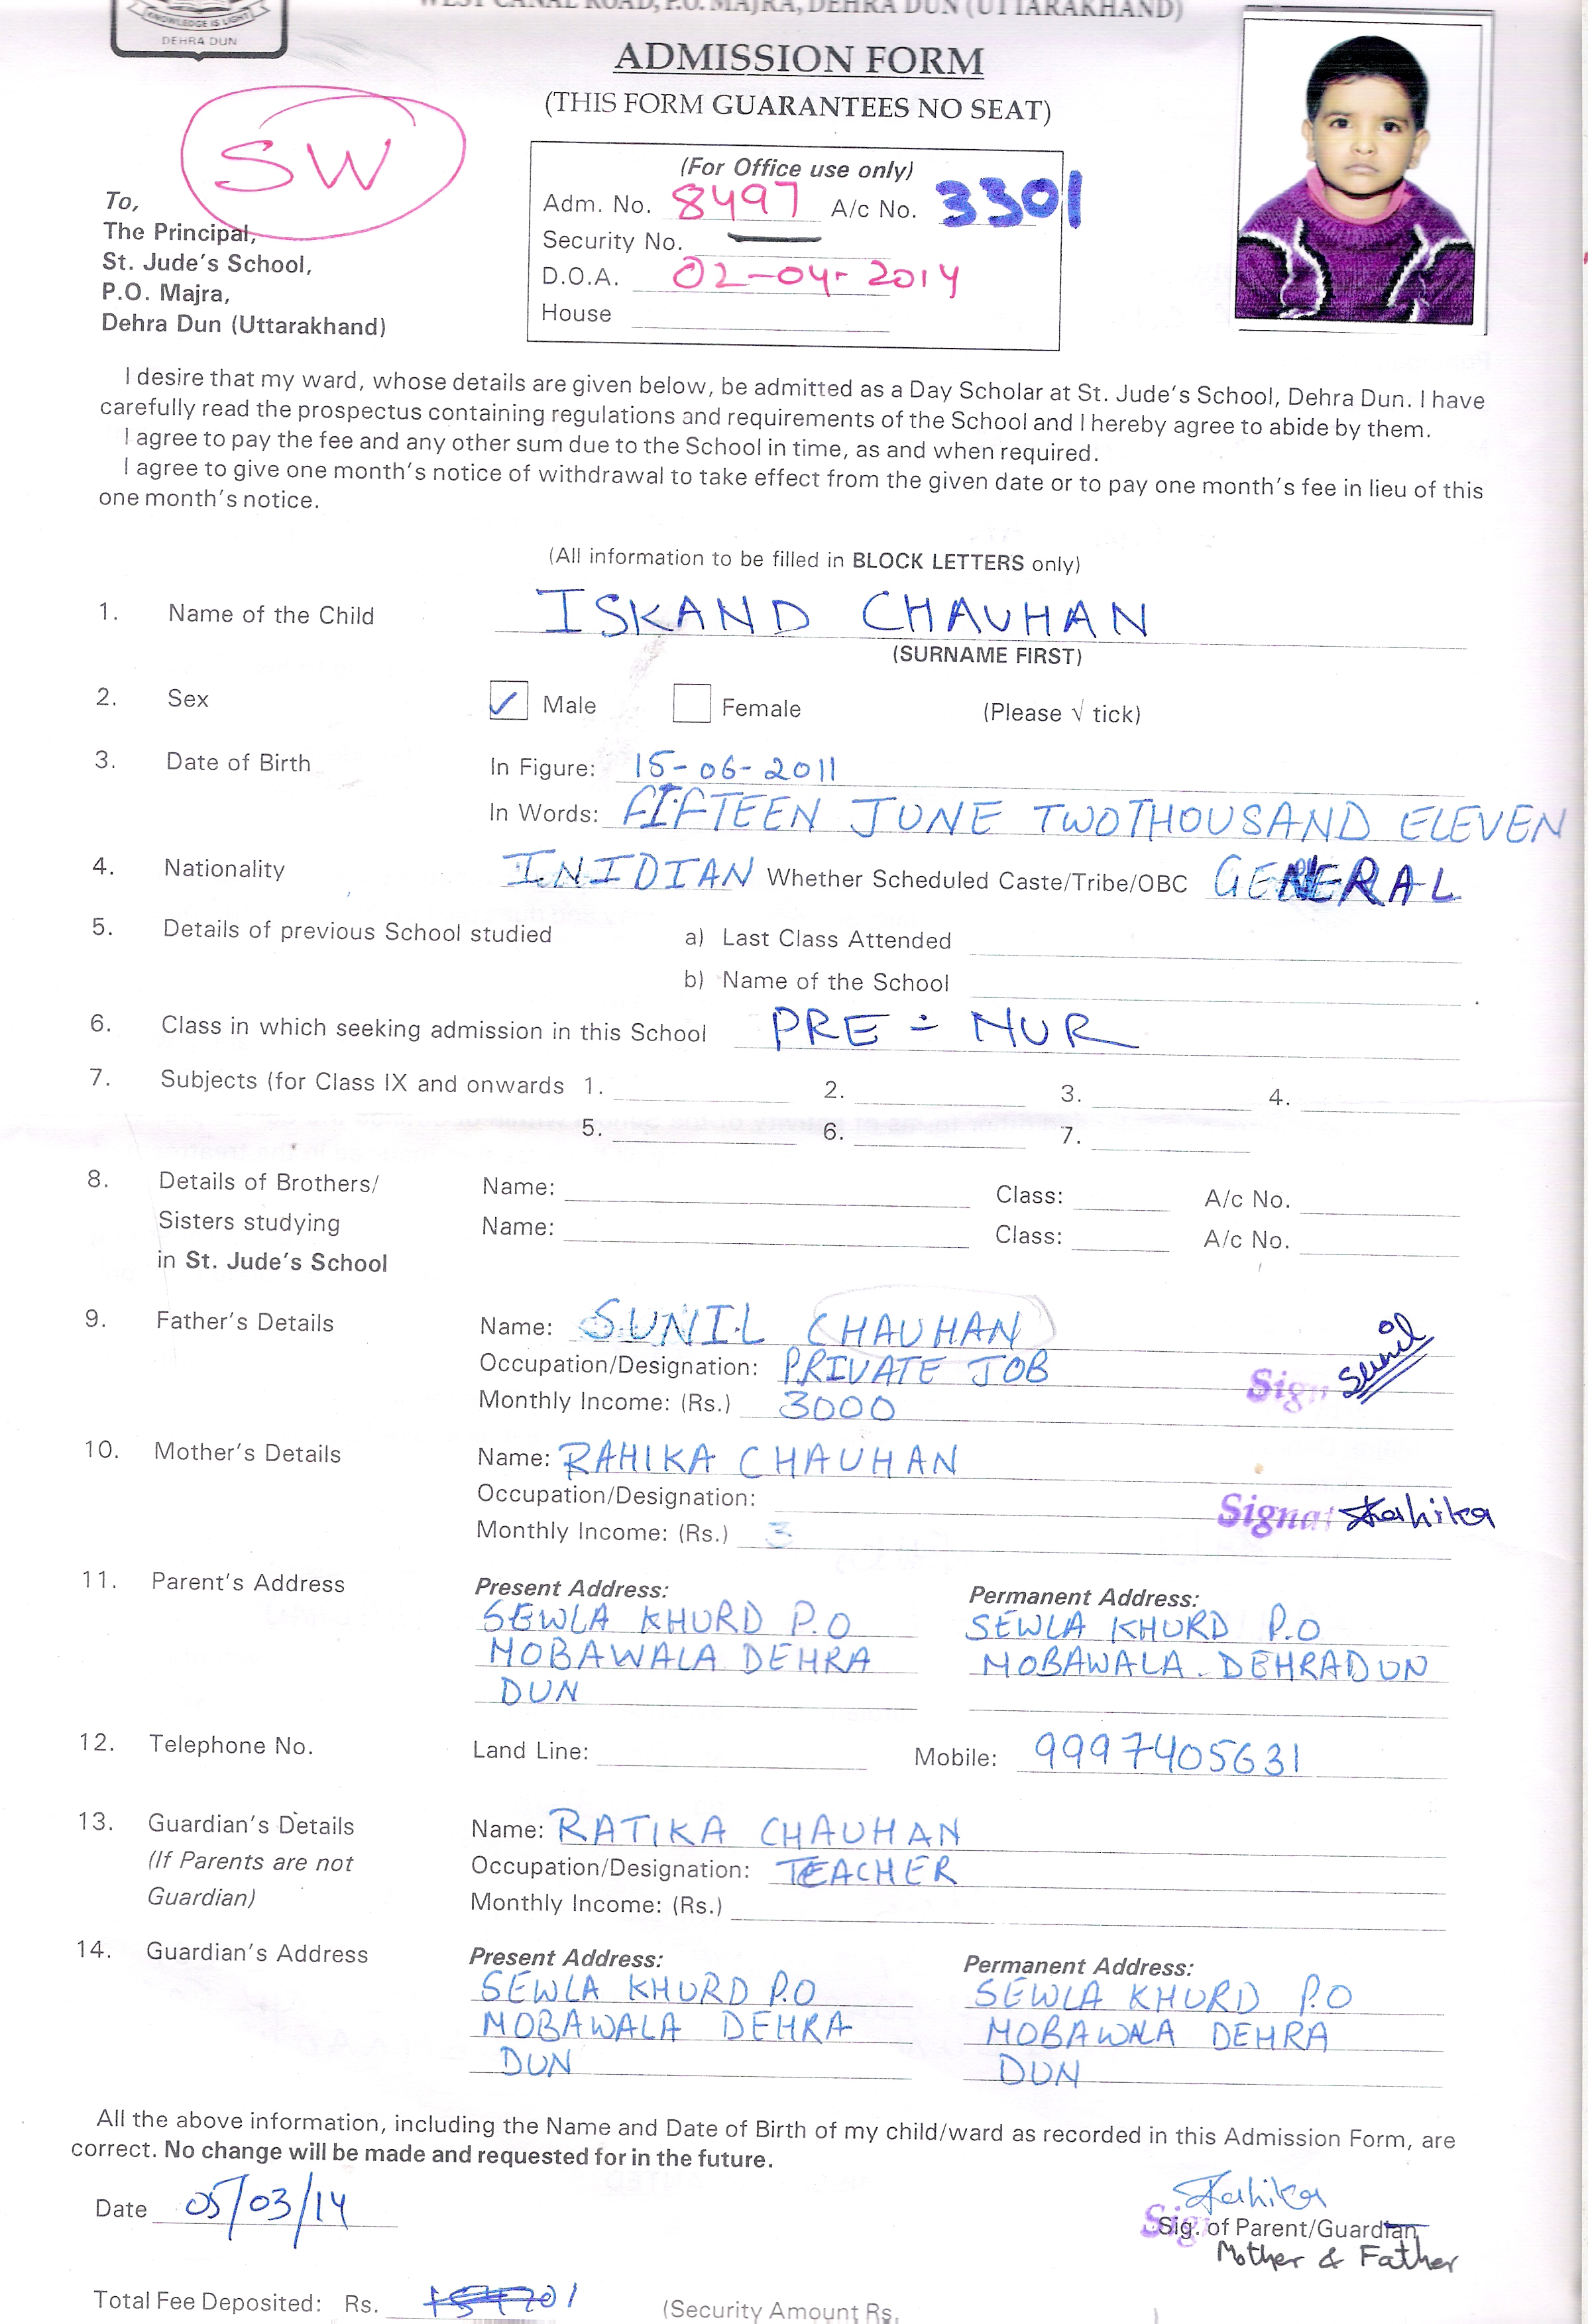 KNOWLEDGE IS LIGHT
DEHRA DUN
WEST CANAL ROAD, P.O. MAJRA, DEHRA DUN (UTTARAKHAND)
ADMISSION FORM
(THIS FORM GUARANTEES NO SEAT)
SW
(For Office use only)
Adm. No. 8497 A/c No. 3301
Security No. —
D.O.A. 02-04-2014
House
To,
The Principal,
St. Jude's School,
P.O. Majra,
Dehra Dun (Uttarakhand)
I desire that my ward, whose details are given below, be admitted as a Day Scholar at St. Jude's School, Dehra Dun. I have
carefully read the prospectus containing regulations and requirements of the School and I hereby agree to abide by them.
I agree to pay the fee and any other sum due to the School in time, as and when required.
I agree to give one month's notice of withdrawal to take effect from the given date or to pay one month's fee in lieu of this
one month's notice.
(All information to be filled in BLOCK LETTERS only)
1. Name of the Child ISKAND CHAUHAN
(SURNAME FIRST)
2. Sex ✓ Male Female (Please √ tick)
3. Date of Birth In Figure: 15-06-2011
In Words: FIFTEEN JUNE TWOTHOUSAND ELEVEN
4. Nationality INIDIAN Whether Scheduled Caste/Tribe/OBC GENERAL
5. Details of previous School studied a) Last Class Attended
b) Name of the School
6. Class in which seeking admission in this School PRE - NUR
7. Subjects (for Class IX and onwards 1. 2. 3. 4.
5. 6. 7.
8. Details of Brothers/ Name: Class: A/c No.
Sisters studying Name: Class: A/c No.
in St. Jude's School
9. Father's Details Name: SUNIL CHAUHAN
Occupation/Designation: PRIVATE JOB Sign Sunil
Monthly Income: (Rs.) 3000
10. Mother's Details Name: RAHIKA CHAUHAN
Occupation/Designation: Signat Rahika
Monthly Income: (Rs.) 3
11. Parent's Address Present Address: Permanent Address:
SEWLA KHURD P.O SEWLA KHURD P.O
MOBAWALA DEHRA MOBAWALA DEHRADUN
DUN
12. Telephone No. Land Line: Mobile: 9997405631
13. Guardian's Details Name: RATIKA CHAUHAN
(If Parents are not Occupation/Designation: TEACHER
Guardian) Monthly Income: (Rs.)
14. Guardian's Address Present Address: Permanent Address:
SEWLA KHURD P.O SEWLA KHURD P.O
MOBAWALA DEHRA MOBAWALA DEHRA
DUN DUN
All the above information, including the Name and Date of Birth of my child/ward as recorded in this Admission Form, are
correct. No change will be made and requested for in the future.
Date 05/03/14 Rahika
Sig. of Parent/Guardian
Mother & Father
Total Fee Deposited: Rs. (Security Amount Rs.